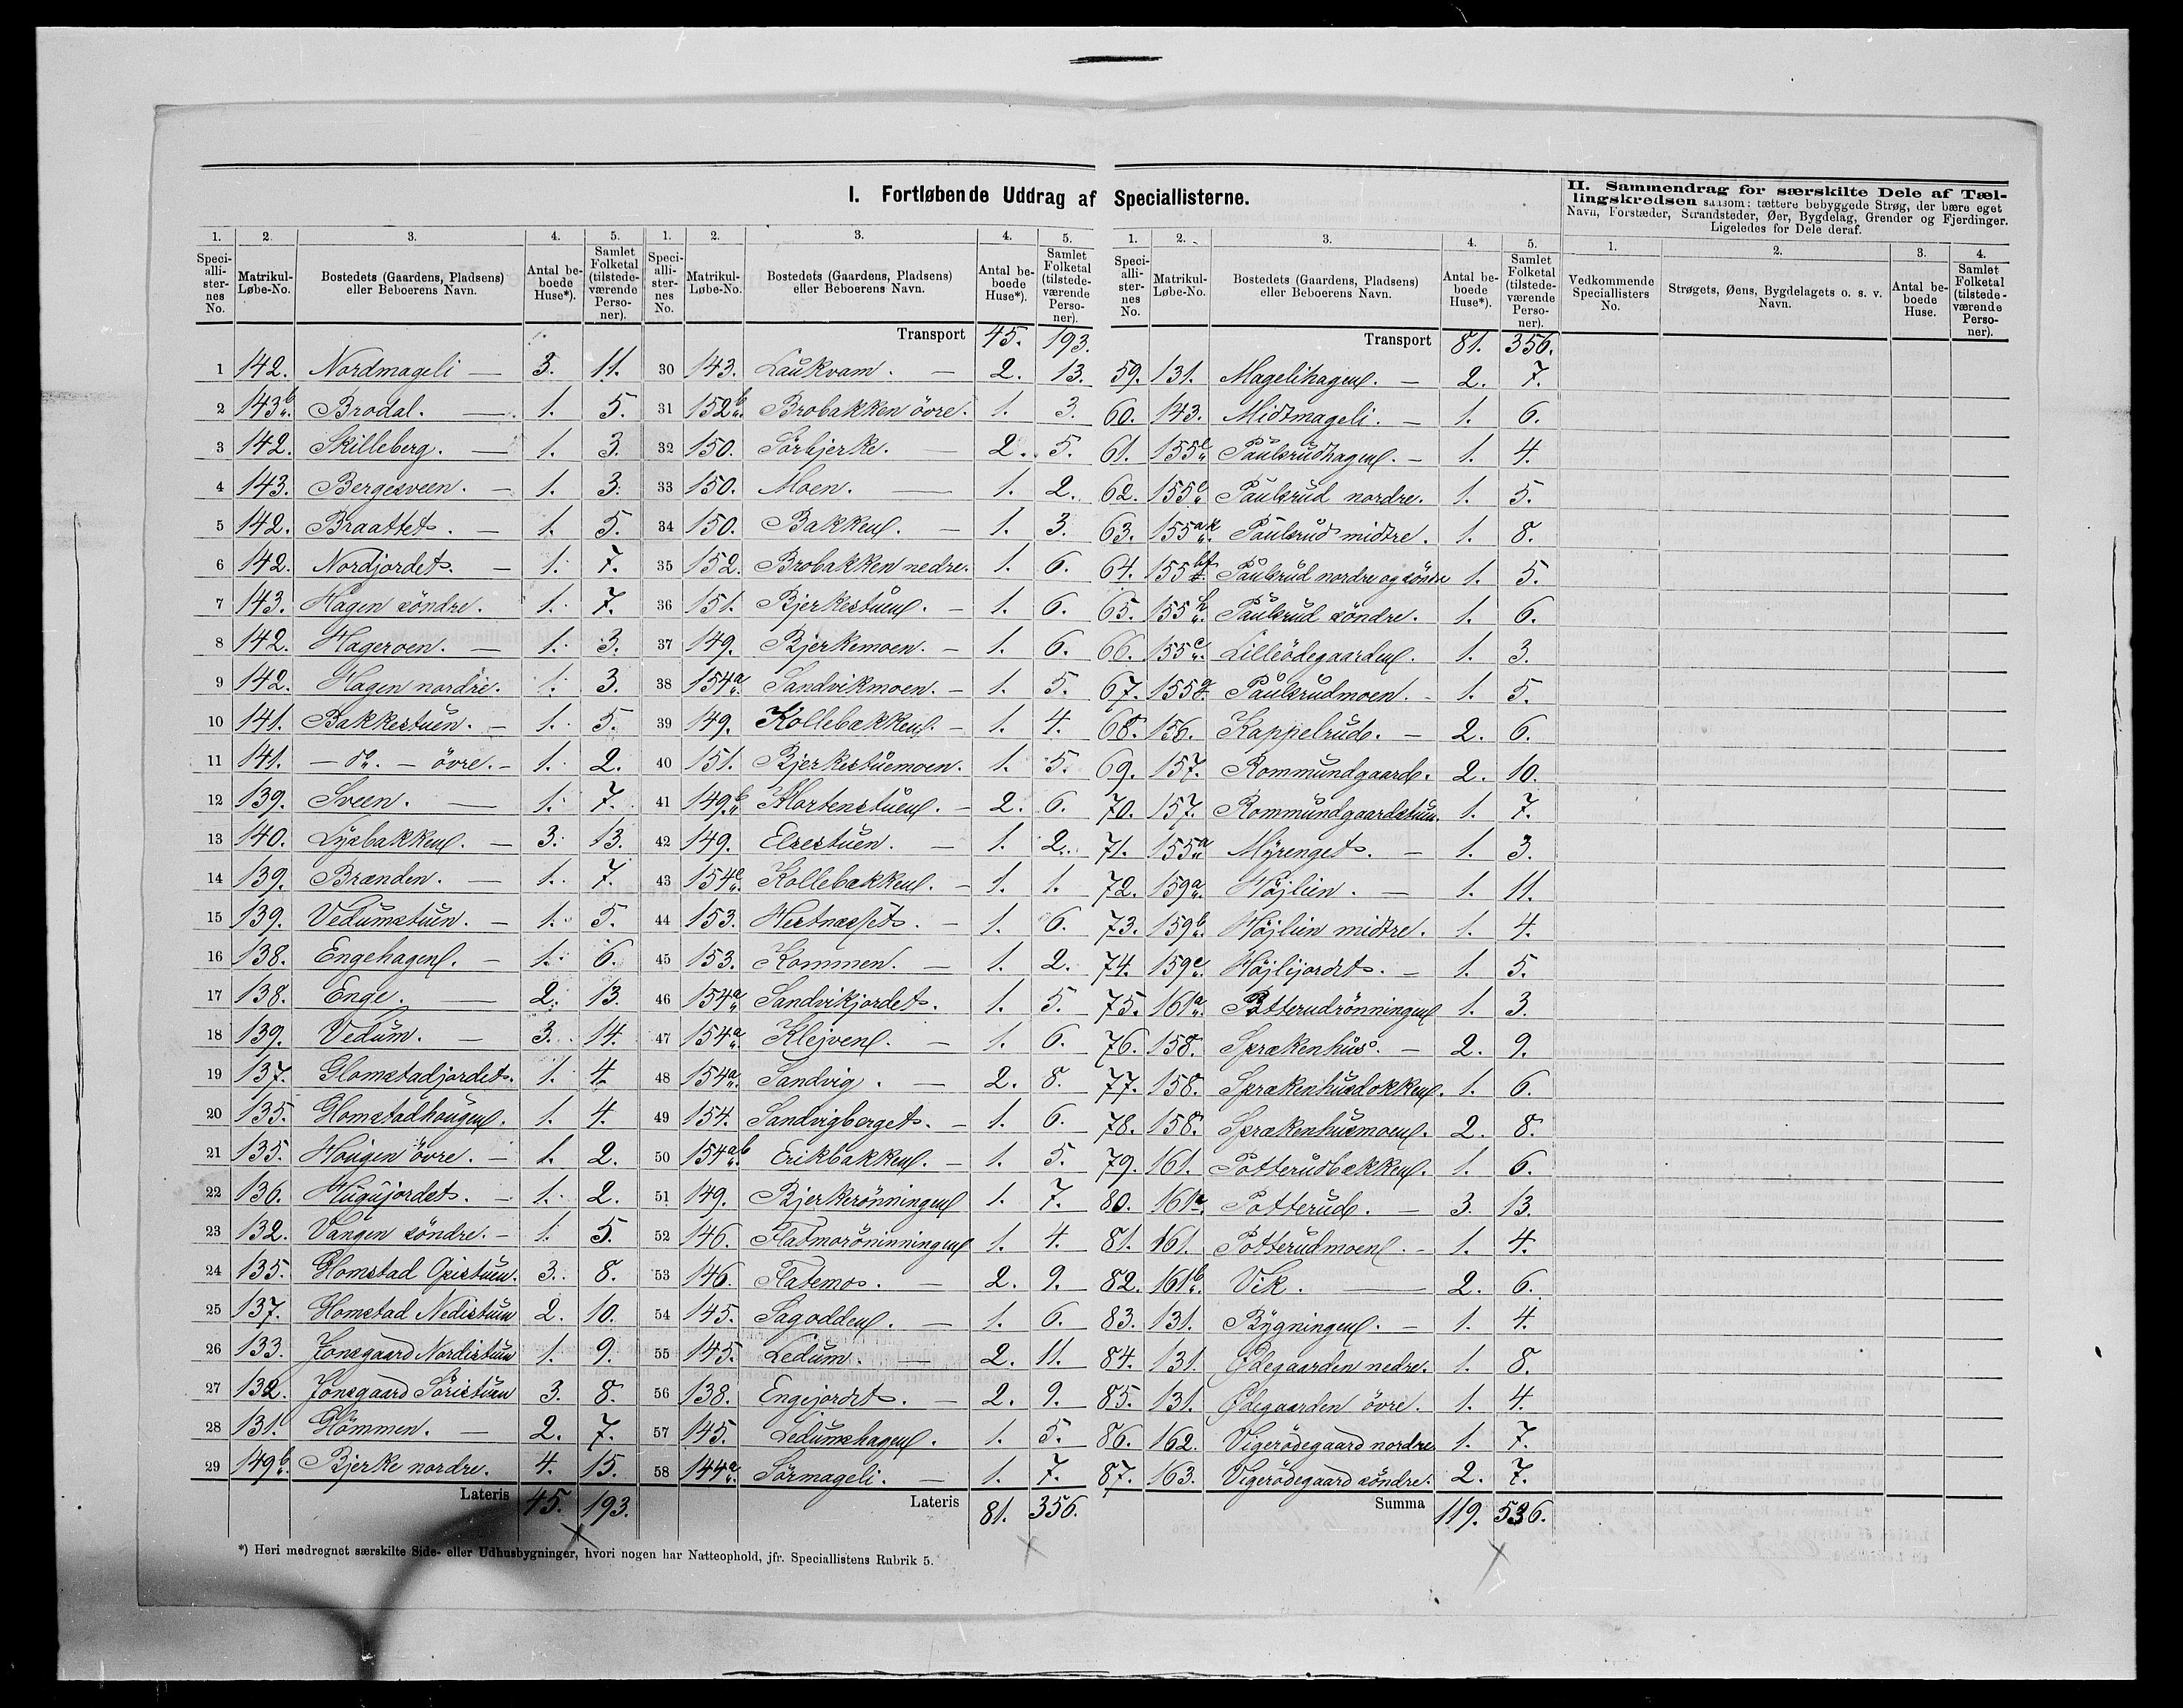 I. Fortløbende Uddrag af Speciallisterne.
II. Sammendrag for særskilte Dele af Tællingskredsen saasom: tættere bebyggede Strøg, der bære eget
Navn, Forstæder, Strandsteder, Øer, Bygdelag, Grender og Fjerdinger.
Ligeledes for Dele deraf.
1. 2. 3. 4. 5.
Speciallisternes No. Matrikul-Løbe-No. Bostedets (Gaardens, Pladsens) eller Beboerens Navn. Antal beboede Huse*). Samlet Folketal (tilstedeværende Personer).
1 142. Nordmageli — 3. 11.
2 143b. Brodal. — 1. 5.
3 142. Skilleberg. — 1. 3.
4 143. Bergesveen. — 1. 3.
5 142. Braattet. — 1. 5.
6 142. Nordjordet. — 1. 7.
7 143. Hagen söndre. 1. 7.
8 142. Hageroen. — 1. 3.
9 142. Hagen nordre. 1. 3.
10 141. Bakkestuen. — 1. 5.
11 141. — do. — övre. — 1. 2.
12 139. Sveen. — 1. 7.
13 140. Lysbakken. — 3. 13.
14 139. Brænden. — 1. 7.
15 139. Vedumstuen. — 1. 5.
16 138. Engehagen. — 1. 6.
17 138. Enge. — 2. 13.
18 139. Vedum. — 3. 14.
19 137. Glomstadjordet. 1. 4.
20 135. Glomstadhougen. 1. 4.
21 135. Hougen övre. — 1. 2.
22 136. Hugujordet. — 1. 2.
23 132. Vangen söndre. — 1. 5.
24 135. Glomstad Opistuen. 3. 8.
25 137. Glomstad Nedistuen 2. 10.
26 133. Jonsgaard Nordistuen 1. 9.
27 132. Jonsgaard Söristuen 3. 8.
28 131. Glömmen. — 2. 7.
29 149b. Bjerke nordre. 4. 15.
Lateris 45. 193.
1. 2. 3. 4. 5.
Speciallisternes No. Matrikul-Løbe-No. Bostedets (Gaardens, Pladsens) eller Beboerens Navn. Antal beboede Huse*). Samlet Folketal (tilstedeværende Personer).
Transport 45. 193.
30 143. Laukvam. — 2. 13.
31 152b. Brobakken övre. 1. 3.
32 150. Sörbjerke. — 2. 5.
33 150. Moen. — 1. 2.
34 150. Bakken. — 1. 3.
35 152. Brobakken nedre. 1. 6.
36 151. Bjerkestuen. — 1. 6.
37 149. Bjerkemoen. — 1. 6.
38 154a. Sandvikmoen. — 1. 5.
39 149. Kollebakken. — 1. 4.
40 151. Bjerkestuemoen. 1. 5.
41 149b. Mortenstuen. — 2. 6.
42 149. Elsestuen. — 1. 2.
43 154c. Kollebakken. — 1. 1.
44 153. Hestnæsset. — 1. 6.
45 153. Kommen. — 1. 2.
46 154a. Sandvikjordet. 1. 5.
47 154a. Klejven. — 1. 6.
48 154a. Sandvig. — 2. 8.
49 154. Sandvigberget. — 1. 6.
50 154ab. Erikbakken. — 1. 5.
51 149. Bjerkerönningen 1. 7.
52 146. Flatmoröninningen 1. 4.
53 146. Flatemo. — 2. 9.
54 145. Sagodden. — 1. 6.
55 145. Ledum. — 2. 11.
56 138. Engejordet. — 2. 9.
57 145. Ledumshagen. 1. 5.
58 144a. Sörmageli. — 1. 7.
Lateris 81. 356.
1. 2. 3. 4. 5.
Speciallisternes No. Matrikul-Løbe-No. Bostedets (Gaardens, Pladsens) eller Beboerens Navn. Antal beboede Huse*). Samlet Folketal (tilstedeværende Personer).
Transport 81. 356.
59. 131. Magelihagen. — 2. 7.
60. 143. Midtmageli. — 1. 6.
61. Paulsrudhagen. — 1. 4.
62. Paulsrud nordre. 1. 5.
63. 155ak. Paulsrud midtre. 1. 8.
64. Paulsrud nordre og söndre 1. 5.
65. 155h. Paulsrud söndre. 1. 6.
66. 155c. Lilleödegaarden. 1. 3.
67. 155g. Paulsrudmoen. — 1. 5.
68. 156. Kappelrud. — 2. 6.
69. 157. Rommundgaard. 2. 10.
70. 157. Rommundgaardstuen. 1. 7.
71. 155a. Myrenget. — 1. 3.
72. 159a. Höjlien. — 1. 11.
73. 159b. Höjlien midtre. 1. 4.
74. 159c. Höjlijordet. — 1. 5.
75. 161a. Potterudrönningen 1. 3.
76. 158. Sprækenhus. — 2. 9.
77. 158. Sprækenhusdokken. 1. 6.
78. 158. Sprækenhusmoen. 2. 8.
79. 161. Potterudbakken. 1. 6.
80. 161a. Potterud. — 3. 13.
81. 161. Potterudmoen. — 1. 4.
82. 161b. Vik. — 2. 6.
83. 131. Bygningen. — 1. 4.
84. 131. Ødegaarden nedre. 1. 8.
85. 131. Ødegaarden övre. 1. 4.
86. 162. Vigerödegaard nordre 1. 7.
87. 163. Vigerödegaard söndre. 2. 7.
Summa 119. 536.
1. 2. 3. 4.
Vedkommende Speciallisters No. Strøgets, Øens, Bygdelagets o. s. v. Navn. Antal beboede Huse. Samlet Folketal (tilstedeværende Personer).
*) Heri medregnet særskilte Side- eller Udhusbygninger, hvori nogen har Natteophold, jfr. Speciallistens Rubrik 5.